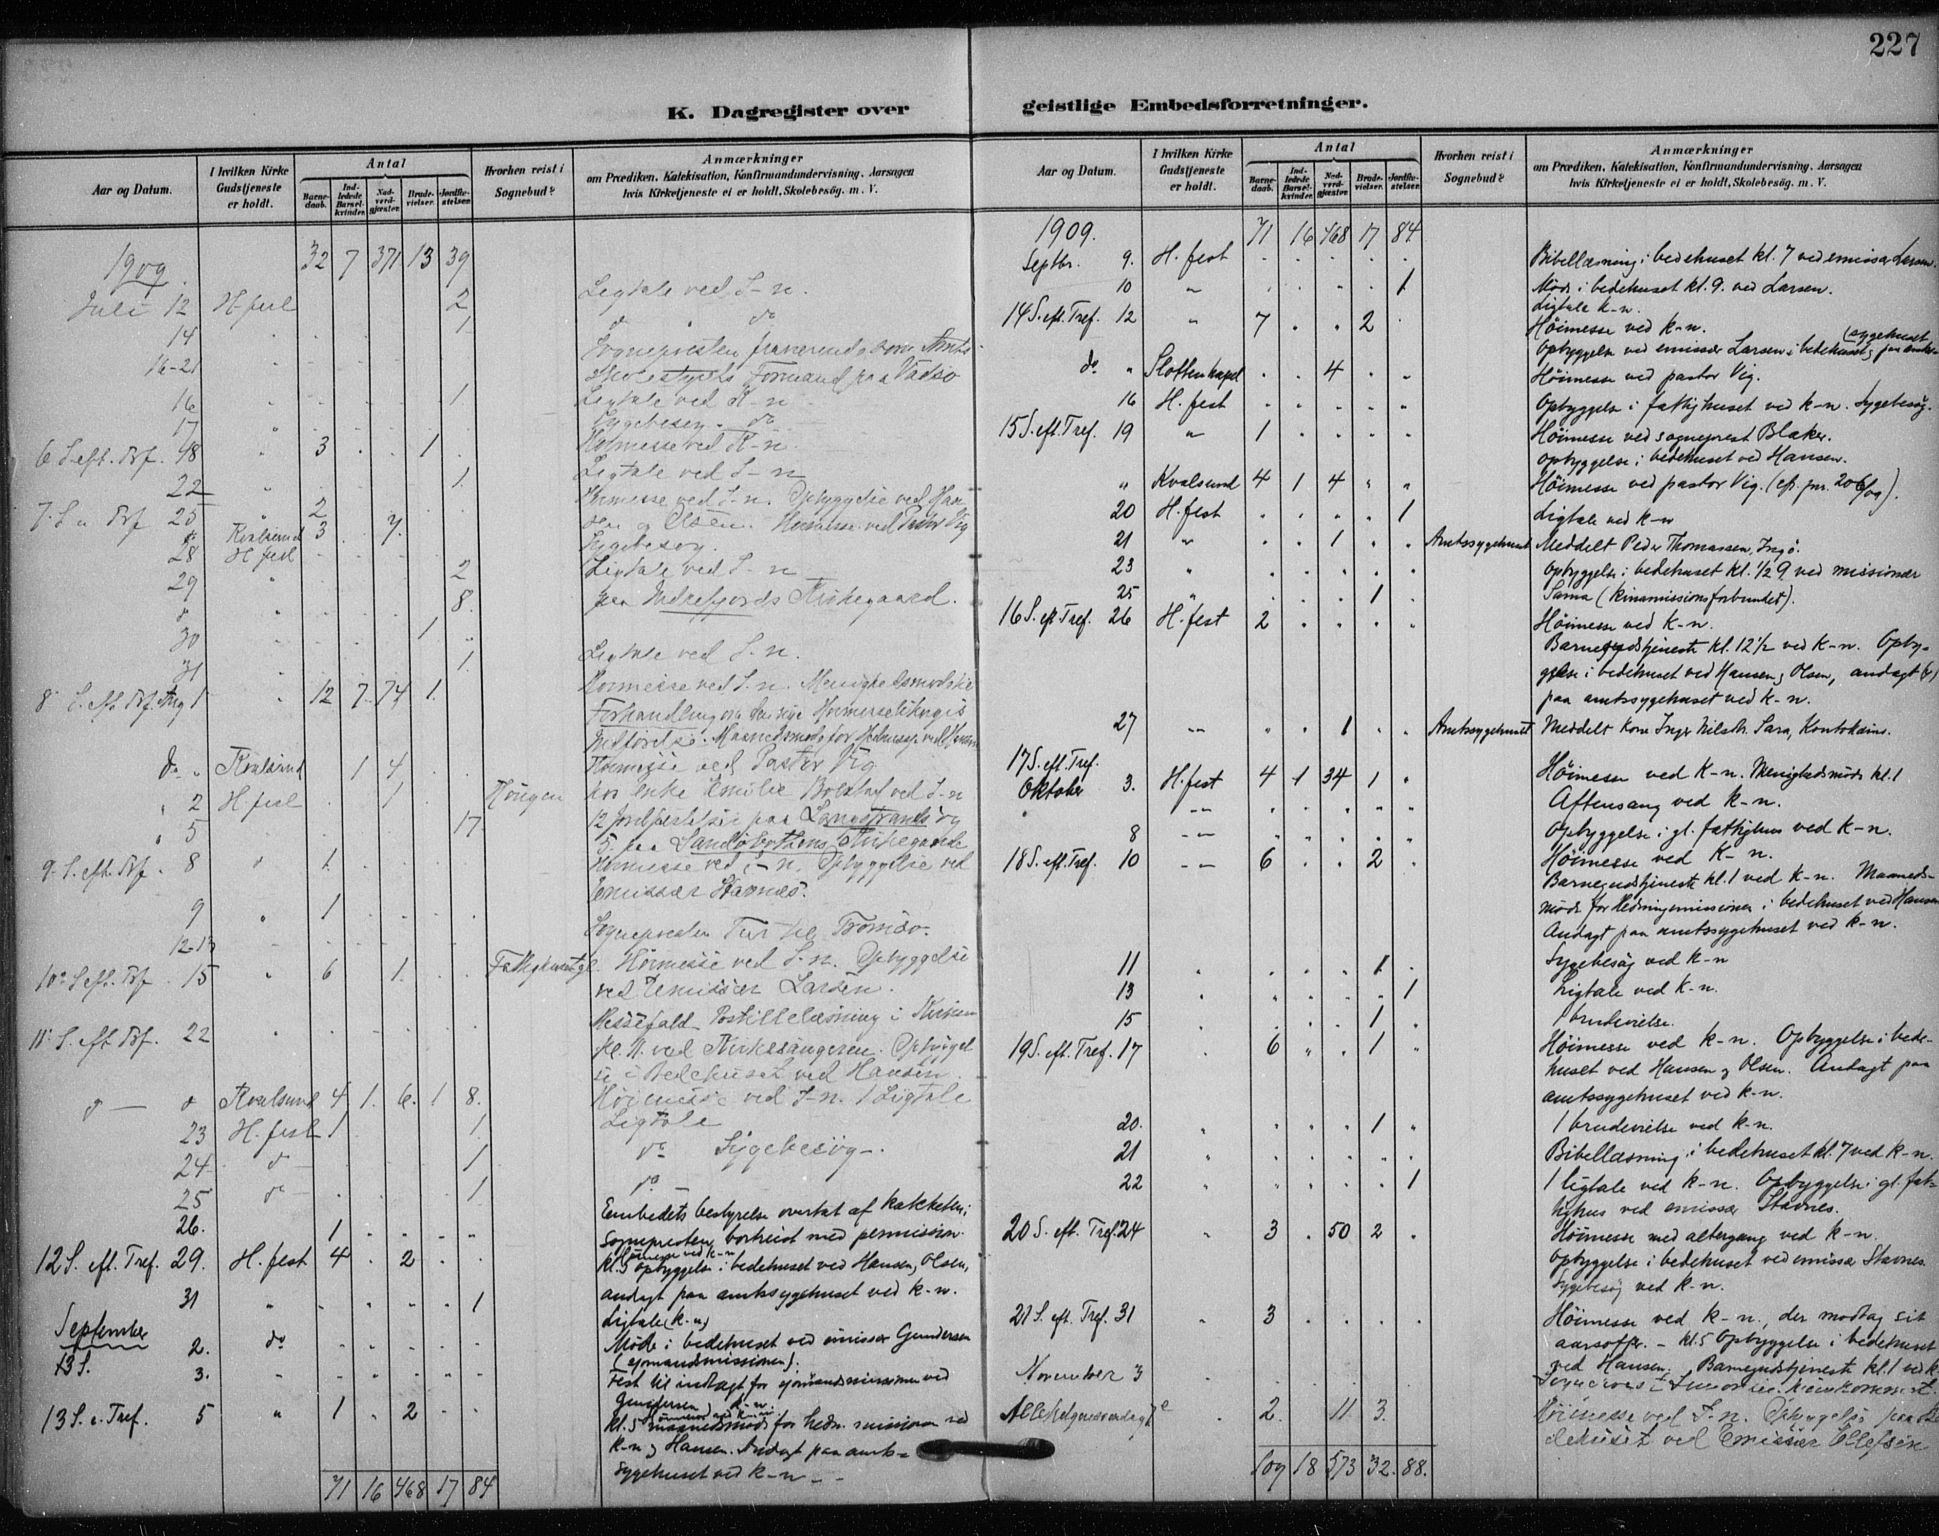 227
K. Dagregister over geistlige Embedsforretninger.
Aar og Datum.
I hvilken Kirke Gudstjeneste er holdt.
Antal
Barnedaab.
Indledede Barselkvinder.
Nadverdgjæster.
Brudevielser.
Jordfæstelser.
Hvorhen reist i Sognebud?
Anmærkninger
om Prædiken, Katekisation, Konfirmandundervisning, Aarsagen
hvis Kirketjeneste ei er holdt, Skolebesøg. m. V.
1909. 32 7 371 13 39
Juli 12 H.fest 2 Ligtale ved S-n.
14 1 do do
16-21 Sognepresten fraværende som Amts-
skolestyrets Formand paa Vadsø
16 1 Ligtale ved K-n
17 Sygebesøg. do
6 S. eft. Tref. 18 3 1 Høimesse ved K-n.
22 1 Ligtale ved S-n
7. S. e Tref 25 2 Høimesse ved S-n. Opbyggelse ved Han-
sen og Olsen.
Kvalsund 3 7. Høimesse ved Pastor Vig
28 H fest Sygebesøg.
29 2 Ligtale ved S-n
d 8. paa Indrefjords Kirkegaard.
30 1
31 1. Ligtale ved S-n.
8 S. eft Tref. Aug 1 12 7 74 1. Høimesse ved S-n. Menighedsmøde
Forhandling om
Indførelse. Maanedsmøde for Hedningem. ved Hansen
do " Kvalsund 1 4 Høimesse ved Pastor Vig
" 2 H fest 1 hos Enke Emilie ved S-n
" 5 17 12 Jordfæstelser paa Langstrands og
5 paa Sandøbotnens Kirkegaarde
9. S. eft. Tref. 8 1. Høimesse ved S-n. Opbyggelse ved
Emissær Stavnes.
9 1
12-13 Sognepresten Tur til Tromsø.
10. S. eft. Tref 15 6 1. Fattighuset gl. Høimesse ved S-n. Opbyggelse
ved Emissær Larsen.
11. S. eft Tref. 22 Messefald. Postillelæsning i Kirken
kl. 11 ved Kirkesangeren. Opbyggel-
se i Bedehuset ved Hansen.
d — d Kvalsund 4 1. 6. 1 8. Høimesse ved S-n. 1 Ligtale
23 H. fest 1 1. Ligtale
24 d 1 do Sygebesøg.
25 d 1 do
26. 1 Embedets bestyrelse overtat af kateketen;
Sognepresten bortreist med permission.
Høimesse ved k-n
12 S. eft. Tref. 29. H. fest 4 2 kl. 5 opbyggelse i bedehuset ved Hansen, Olsen,
andagt paa amtssygehuset ved k-n.
31 " 1 Ligtale (k-n)
September 2. do Møde i bedehuset ved emissær Gundersen
(sjømandsmissionen).
13 S. 3. Fest til indtægt for sjømandsmissionen ved
Gundersen, k-n.
Høimesse ved k-n
13 S. e. Tref. 5 " 1 2 kl. 5 maanedsmøde for hedn. missionen ved
k-n og Hansen. Andagt paa amts-
sygehuset ved k-n
71 16 468 17 84
Aar og Datum.
I hvilken Kirke Gudstjeneste er holdt.
Antal
Barnedaab.
Indledede Barselkvinder.
Nadverdgjæster.
Brudevielser.
Jordfæstelser.
Hvorhen reist i Sognebud?
Anmærkninger
om Prædiken, Katekisation, Konfirmandundervisning, Aarsagen
hvis Kirketjeneste ei er holdt, Skolebesøg. m. V.
1909. 71 16 468 17 84
Septbr. 9. H. fest Bibellæsning i bedehuset kl. 7 ved emissær Larsen.
10 " 1 Møde i bedehuset kl. 9. ved Larsen.
Ligtale k-n.
14 S. eft. Tref. 12 " 7 2 Høimesse ved k-n. (sygehuset
Opbyggelse ved emissær Larsen i bedehuset og paa amts-
do " Slottenkapel 4 Høimesse ved pastor Vig.
16 H. fest Opbyggelse i fattighuset ved k-n. Sygebesøg.
15 S. eft. Tref. 19 " 1 Høimesse ved sogneprest Blaker.
Opbyggelse i bedehuset ved Hansen.
" Kvalsund 4 1 4 Høimesse ved pastor Vig.
20 H. fest 1 Ligtale ved k-n
21 " 1 Amtssygehuset Meddelt Peder Thomassen, Ingø.
23 " Opbyggelse i bedehuset kl. ½ 9 ved missionær
25 " 1 Sama (kinamissionsforbundet).
16 S. ef. Tref. 26 H. fest 2 Høimesse ved k-n.
Barnegudstjeneste kl. 12½ ved k-n. Opby-
gelse i bedehuset ved Hansen og Olsen, andagt
paa amtssygehuset ved k-n.
27 " 1 Amtssygehuset Meddelt kone Inger Nilsdtr. Sara, Kautokeino.
17 S. eft. Tref.
Oktober 3. H. fest 4 1 34 1 Høimesse ved k-n. Menighedsmøde kl. 1
" Aftensang ved k-n.
8 " Opbyggelse i gl. fattighus ved k-n.
18 S. eft. Tref. 10 " 6 2 Høimesse ved k-n.
Barnegudstjeneste kl. 1 ved k-n. Maaneds-
møde for Hedningemissionen i bedehuset ved Hansen
Andagt paa amtssygehuset ved k-n.
11 1 Sygebesøg ved k-n
13 1 Ligtale ved k-n.
15 1 1 brudevielse.
19 S. eft. Tref. 17 6 1 Høimesse ved k-n. Opbyggelse i bede-
huset ved Hansen og Olsen. Andagt paa
amtssygehuset ved k-n.
20. 1 1 brudevielse ved k-n.
21 Bibellæsning i bedehuset kl. 7 ved k-n.
22 1 1 ligtale ved k-n. Opbyggelse i gl. fat-
tighus ved emissær Stavnes.
20 S. eft. Tref. 24 3 50 2 Høimesse med altergang ved k-n.
Opbyggelse i bedehuset ved emissær Stavnes.
Sygebesøg ved k-n.
21 S. eft. Tref. 31 3 Høimesse ved k-n., der modtog sit
aarsoffer. - kl. 5 Opbyggelse i bedehuset
ved Hansen. Barnegudstjeneste kl. 1 ved k
November 3 Sogneprest hjemkommet.
Allehelgensøndag 7e 2. 11 3. Høimesse ved S-n. Opbyggelse paa Be-
dehuset ved Emissær Ellefsen
109 18 573 32. 88.